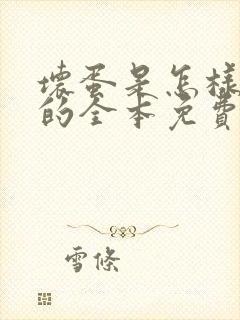 壞蛋是怎樣
的全本免費
雪條